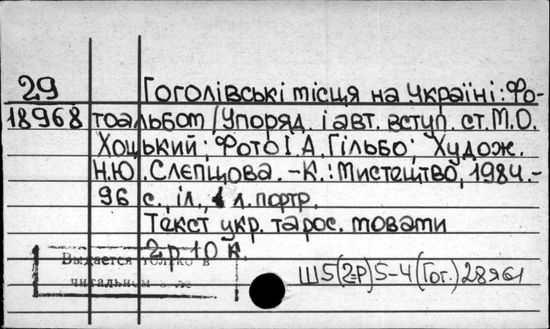 29 Гоголівські місця на Україні: Фо-
18968 тоальбом / Упоряд. і авт. вступ. ст. М.О.
Хоцький; Фото І.А. Гільбо; Худож.
Н.Ю. Слєпцова. -К.: Мистецтво, 1984.-
96 с., іл., 1 л. портр.
Текст укр. та рос. мовами
2 р 10 к.
Выдается только в
читальном зале
Ш5(2=Р)5-4(Гог.) 28961